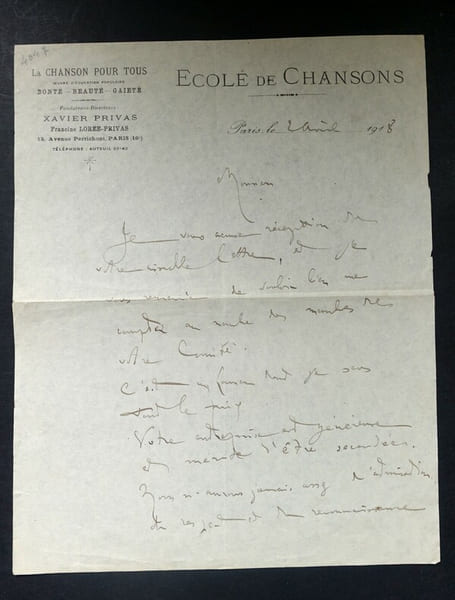 LA CHANSON POUR TOUS
ŒUVRE D'ÉDUCATION POPULAIRE
BONTÉ - BEAUTÉ - GAIETÉ
Fondateurs-Directeurs
XAVIER PRIVAS
Francine LORÉE-PRIVAS
12, Avenue Perrichont, PARIS (16e)
TÉLÉPHONE : AUTEUIL
ECOLE DE CHANSONS
Paris, le 2 Avril 1918
Monsieur
Je vous accuse réception de
votre aimable lettre, et je
vous remercie de vouloir bien me
compter au nombre des membres de
votre Comité.
C'est une faveur dont je sens
tout le prix.
Votre entreprise est généreuse
et mérite d'être secondée.
Nous n'aurons jamais assez d'admiration,
de respect et de reconnaissance